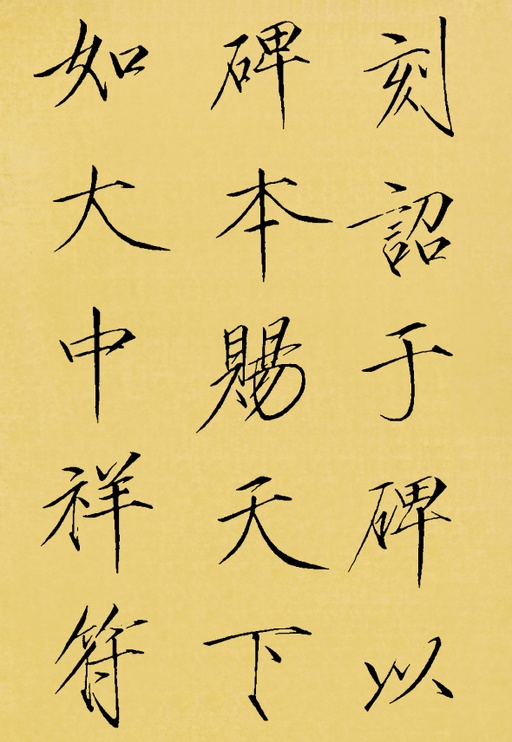 刻詔于碑以
碑本賜天下
如大中祥符